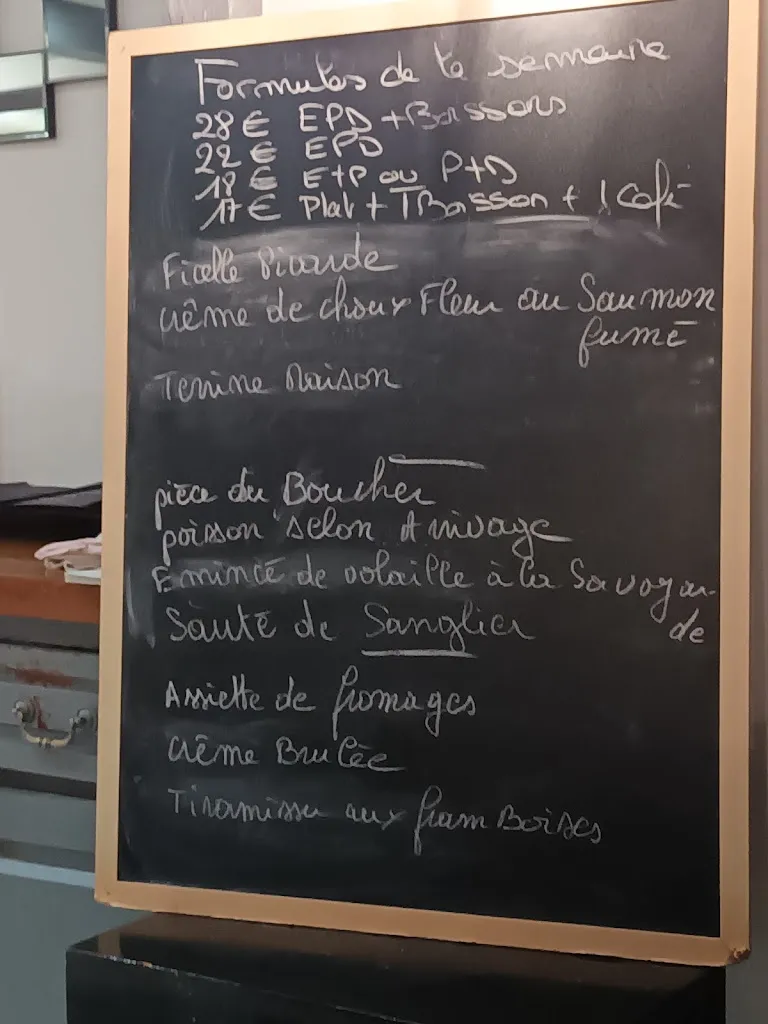 Formules de la semaine
28 € EPD + Boissons
22 € EPD
18 € E+P ou P+D
17 € Plat + 1 Boisson + 1 café
Ficelle Picarde
crème de choux Fleur au Saumon
fumé
Terrine Maison
pièce du Boucher
poisson selon Arrivage
Emincé de volaille à la Savoyar-
de
Sauté de Sanglier
Assiette de fromages
crème Brulée
Tiramissu aux framBoises